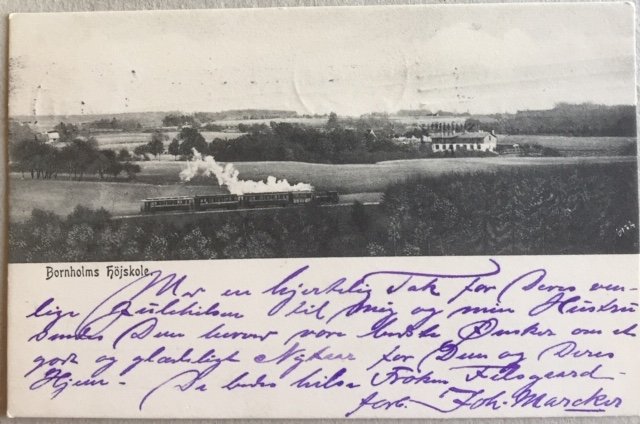 Bornholms Höjskole.
Med en hjertelig Tak for Deres ven-
lige Julehilsen til mig og min Hustru
sendes Dem herved vore bedste Ønsker om et
godt og glædeligt Nytaar for Dem og Deres
Hjem. De bedes hilse Frøken Felsgaard.
forb. Joh. Marcker